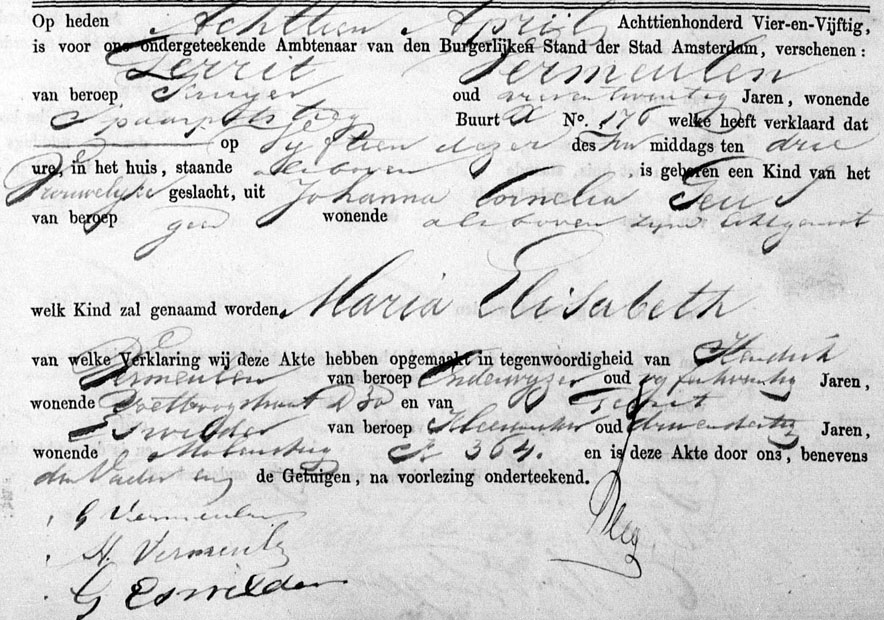 Op heden Achttien April Achttienhonderd Vier-en-Vijftig,
is voor ons ondergeteekende Ambtenaar van den Burgerlijken Stand der Stad Amsterdam, verschenen:
Gerrit Vermeulen
van beroep oud Jaren, wonende
Buurt No. 176 welke heeft verklaard dat
op Vyftien dezer des middags ten drie
ure, in het huis, staande als boven, is geboren een Kind van het
Vrouwelyke geslacht, uit Johanna Cornelia
van beroep geen wonende als boven zyne Echtgenoot
welk Kind zal genaamd worden Maria Elisabeth
van welke Verklaring wij deze Akte hebben opgemaakt in tegenwoordigheid van Hendrik
Vermeulen van beroep Onderwyzer oud Jaren,
wonende en van Gerrit
Eswilder van beroep Kleermaker oud Jaren,
wonende 364. en is deze Akte door ons, benevens
den Vader en de Getuigen, na voorlezing onderteekend.
G Vermeulen
H. Vermeulen
G Eswilder